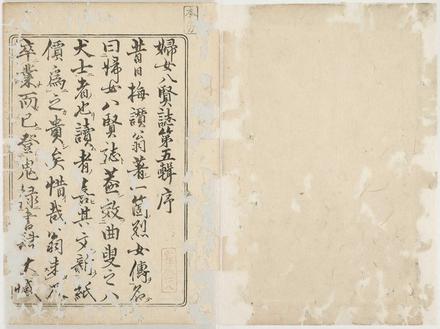 婦女八賢誌第五輯序
昔日梅讚翁著一箇烈女傳名
曰婦女八賢誌蓋效曲叟之八
犬士者也讀者喜其文新紙
價為之貴矣惜哉翁未
卒業而已登鬼録書肆大